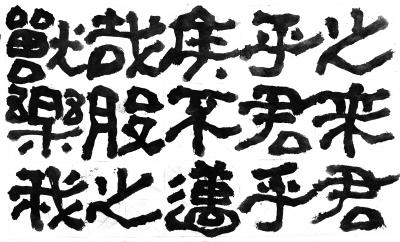 之来君
乎君乎
不邁
哉股之
獸樂我